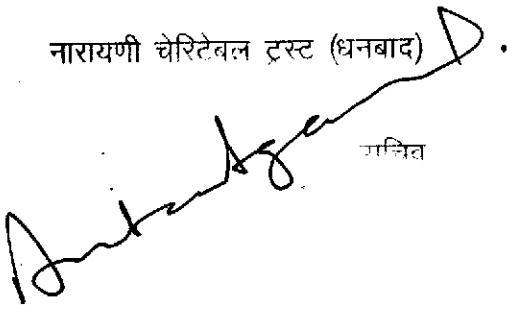 नारायणी चेरिटेबल ट्रस्ट (धनबाद)
सचिव